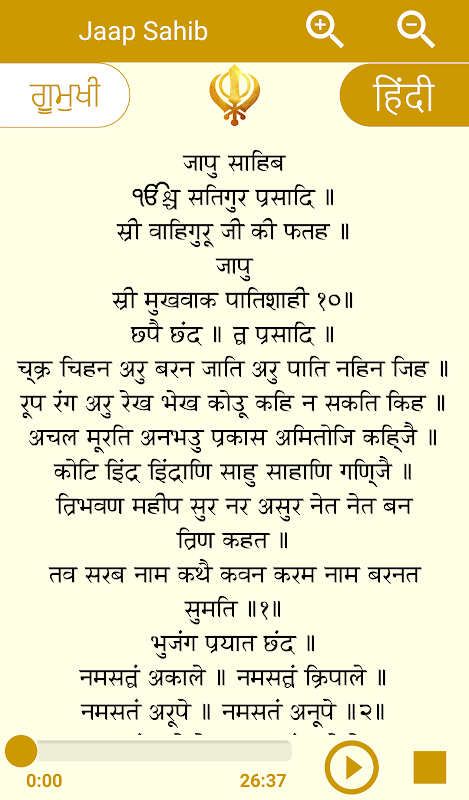 Jaap Sahib
ਗੁਰਮੁਖੀ
हिंदी
जापु साहिब
ੴ सतिगुर प्रसादि ॥
स्री वाहिगुरू जी की फतह ॥
जापु
स्री मुखवाक पातिशाही १०॥
छपै छंद ॥ त्व प्रसादि ॥
च्क्र चिहन अरु बरन जाति अरु पाति नहिन जिह ॥
रूप रंग अरु रेख भेख कोउू कहि न सकति किह ॥
अचल मूरति अनभउ प्रकास अमितोजि कहि्जै ॥
कोटि इिंद्र इिंद्राणि साहु साहाणि गणि्जै ॥
त्रिभवण महीप सुर नर असुर नेत नेत बन
त्रिण कहत ॥
तव सरब नाम कथै कवन करम नाम बरनत
सुमति ॥१॥
भुजंग प्रयात छंद ॥
नमसत्वं अकाले ॥ नमसत्वं क्रिपाले ॥
नमसतं अरूपे ॥ नमसतं अनूपे ॥२॥
0:00
26:37